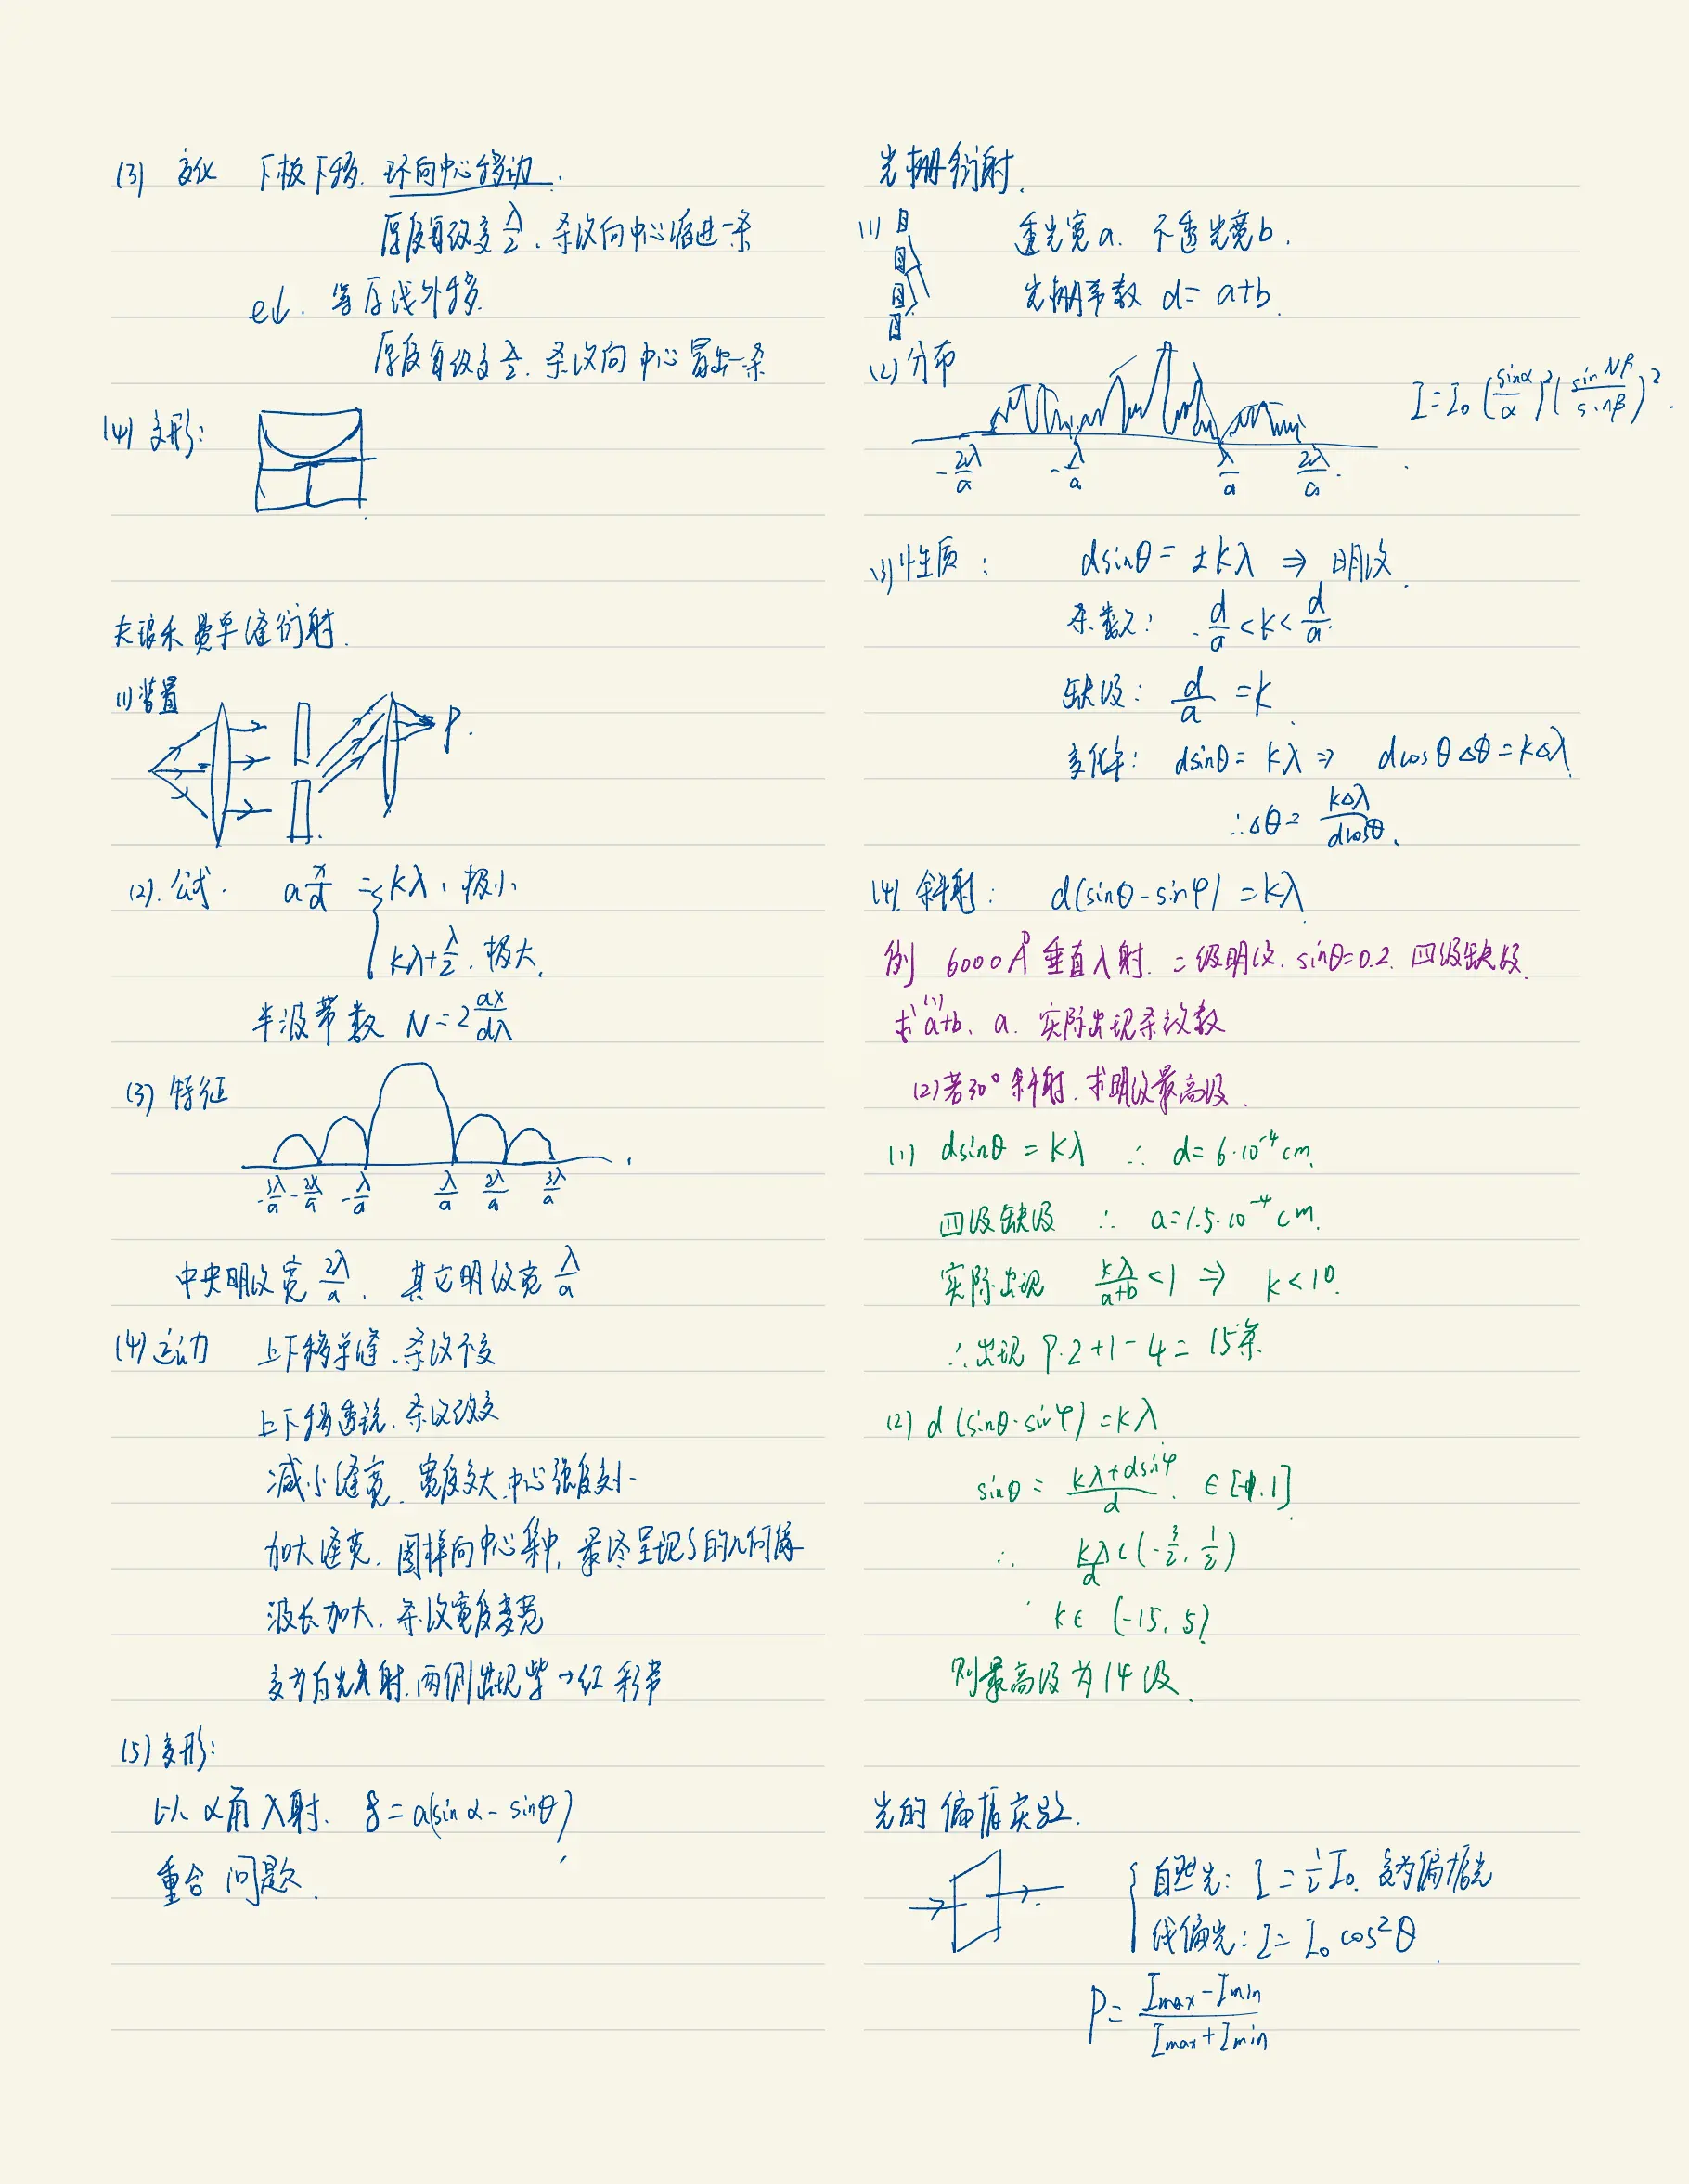 (3) 变化 下板下移. 环向中心移动.
厚度每改变 λ/2 . 条纹向中心缩进一条
e↓. 等厚线外移.
厚度每改变 λ/2 . 条纹向中心冒出一条
(4) 变形:
夫琅禾费单缝衍射.
(1) 装置
P.
(2). 公式. a x/d = { kλ, 极小
kλ+λ/2 . 极大.
半波带数 N = 2 ax/dλ
(3) 特征
-3λ/a -2λ/a -λ/a λ/a 2λ/a 3λ/a
中央明纹宽 2λ/a . 其它明纹宽 λ/a
(4) 运动 上下移单缝. 条纹不变
上下移透镜. 条纹改变
减小缝宽. 宽度变大. 中心强度变小
加大缝宽. 图样向中心集中, 最终呈现S的几何像
波长加大. 条纹宽度变宽
变为白光入射. 两侧出现紫→红彩带
(5) 变形:
以 α角入射. δ = a(sinα - sinθ)
重合问题.
光栅衍射.
(1) 透光宽a. 不透光宽b.
光栅常数 d = a+b.
(2) 分布 I = I₀ (sinα/α)² (sinNβ/sinβ)².
-2λ/a -λ/a λ/a 2λ/a .
(3) 性质: dsinθ = ±kλ ⇒ 明纹.
条数: -d/a < k < d/a.
缺级: d/a = k.
变化率: dsinθ = kλ ⇒ dcosθΔθ = kΔλ
∴ Δθ = kΔλ/dcosθ.
(4). 斜射: d(sinθ - sinφ) = kλ
例 6000Å 垂直入射. 二级明纹. sinθ=0.2. 四级缺级.
求 (1) a+b、a. 实际出现条纹数
(2) 若30° 斜射. 求明纹最高级.
(1) dsinθ = kλ ∴ d = 6·10⁻⁴ cm.
四级缺级 ∴ a = 1.5·10⁻⁴ cm.
实际出现 kλ/a+b < 1 ⇒ k < 10.
∴ 出现 9·2+1-4 = 15条
(2) d(sinθ - sinφ) = kλ
sinθ = kλ+dsinφ/d . ∈ [-1.1]
∴ kλ/d ∈ (-3/2, 1/2)
k∈ (-15, 5)
则最高级为14级.
光的偏振实验.
{ 自然光: I = 1/2 I₀. 变为偏振光
线偏光: I = I₀ cos²θ
P = Imax - Imin / Imax + Imin